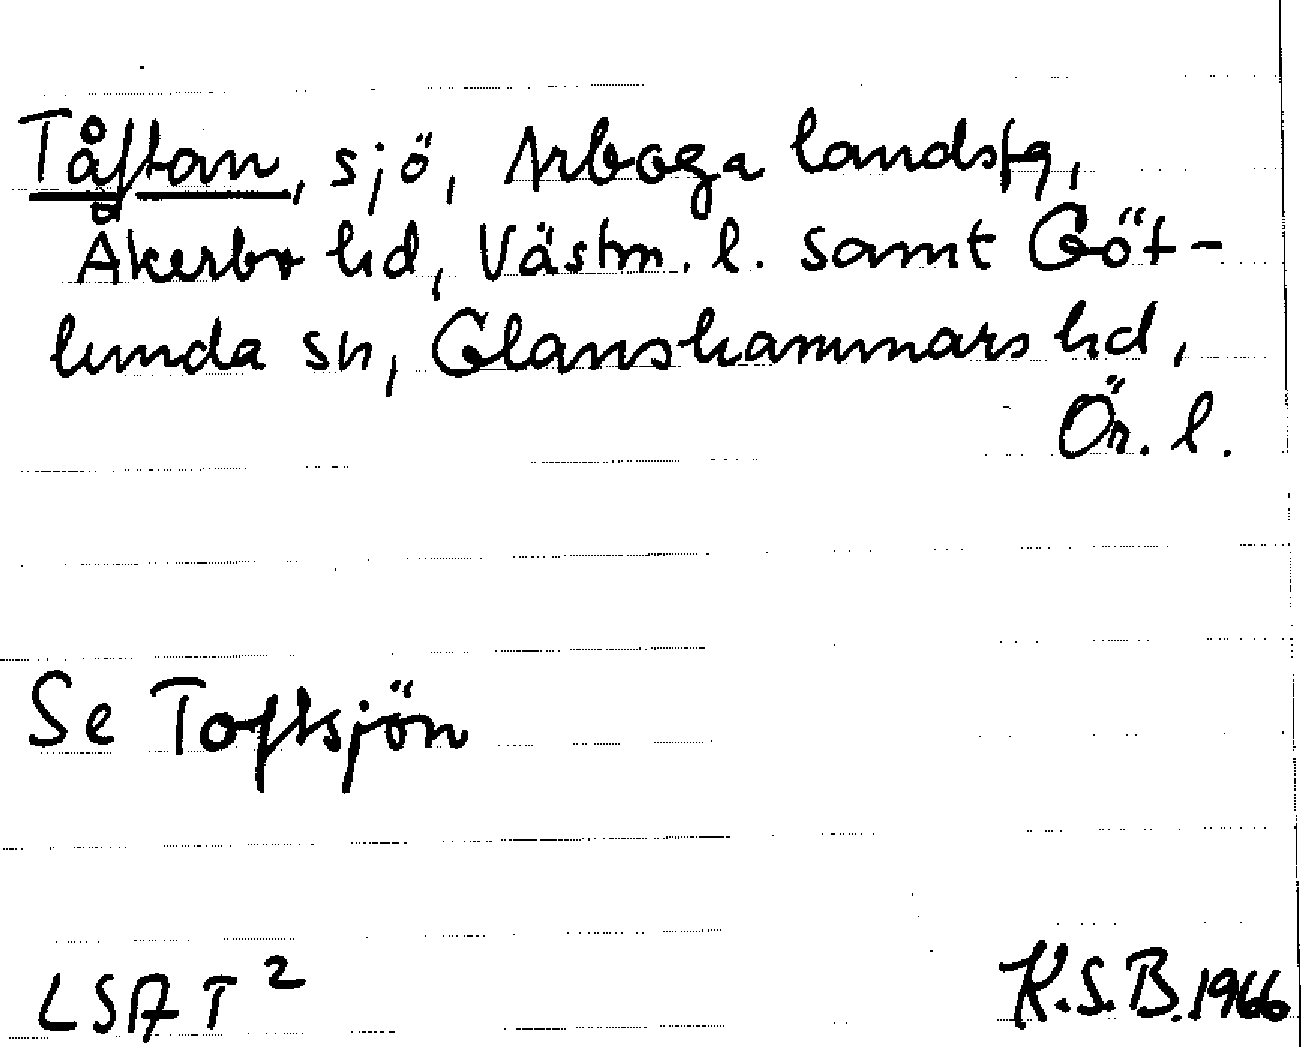 Tåftan, sjö, Arboga landsfg,
Åkerbo hd, Västm. l. samt Göt-
lunda sn, Glanshammars hd,
Ör. l.
Se Toftsjön
LSA T 2
K.S.B. 1966